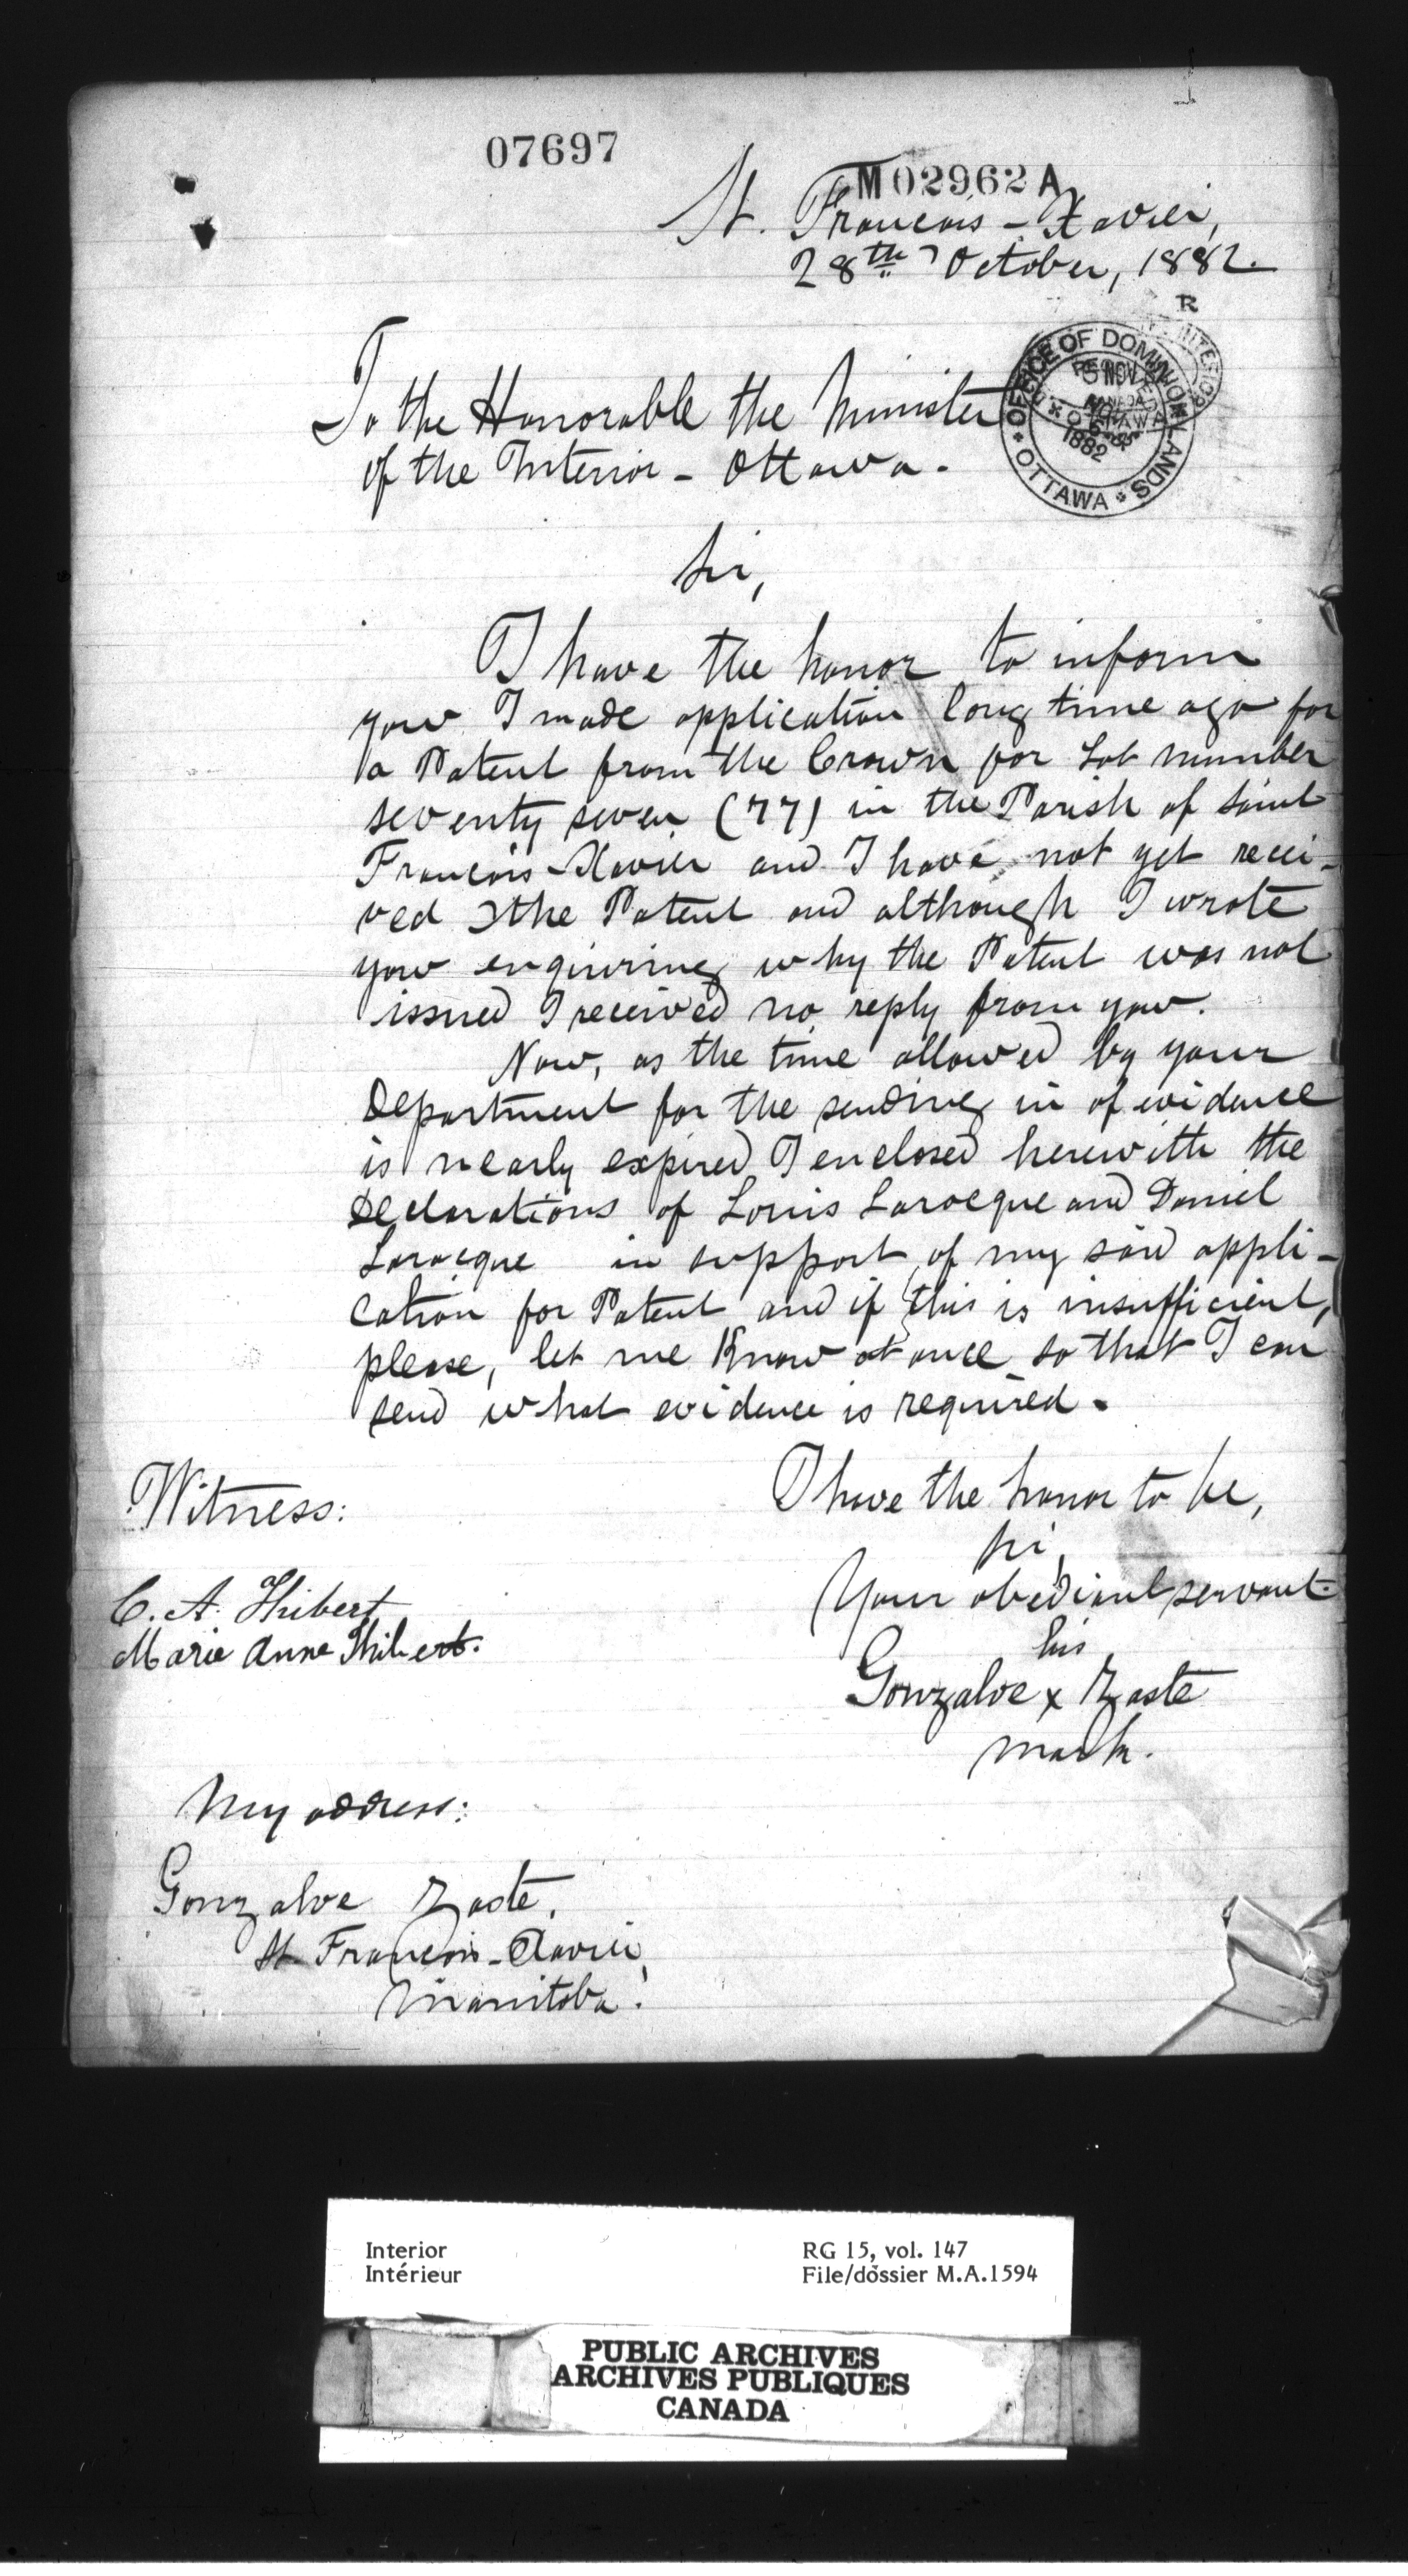 07697
M02962A
St. Francois-Xavier,
28th October, 1882.
R
OFFICE OF DOMINION LANDS
OTTAWA
1882
To the Honorable the Minister
of the Interior - Ottawa.
Sir,
I have the honor to inform
you I made application long time ago for
a Patent from the Crown for Lot number
seventy seven (77) in the Parish of Saint
Francois-Xavier and I have not yet recei-
ved the Patent and although I wrote
you enquiring why the Patent was not
issued I received no reply from you.
Now, as the time allowed by your
Department for the sending in of evidence
is nearly expired I enclosed herewith the
Declarations of Louis Larocque and Daniel
Larocque in support of my said appli-
cation for Patent and if this is insufficient,
please, let me Know at once so that I can
send what evidence is required.
I have the honor to be,
Sir,
Your obediant servant.
his
Gonzalve x Zaste
mark.
Witness:
C. A. Thibert
Marie Anne Thibert.
My address:
Gonzalve Zaste,
St Francois-Xavier,
Manitoba.
Interior
Intérieur
RG 15, vol. 147
File/dossier M.A.1594
PUBLIC ARCHIVES
ARCHIVES PUBLIQUES
CANADA